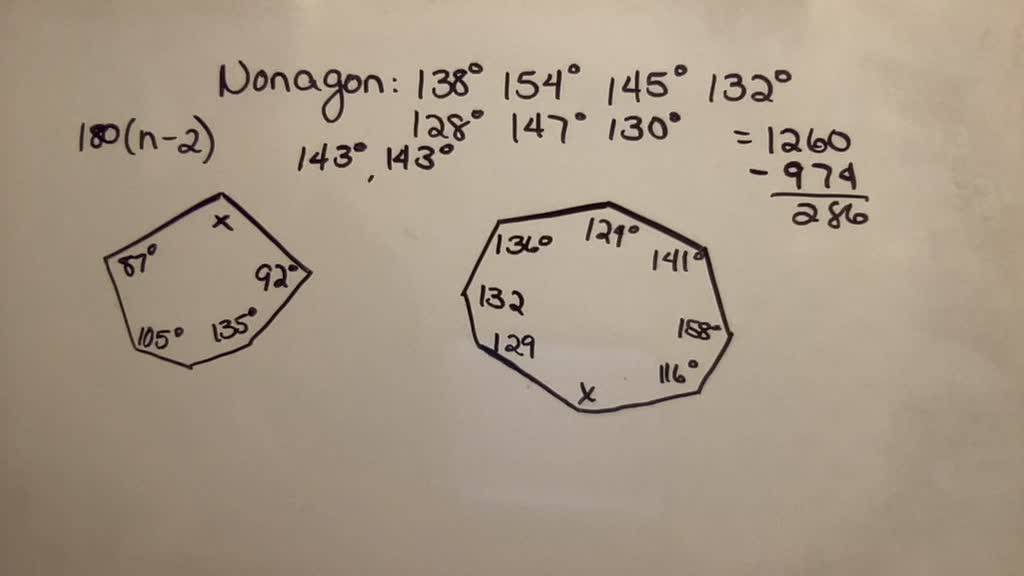 Nonagon: 138° 154° 145° 132°
180(n-2)
128° 147° 130°
= 1260
143°, 143°
- 974
286
x
87°
92°
105° 135°
136° 129°
141°
132
158
129
116°
x